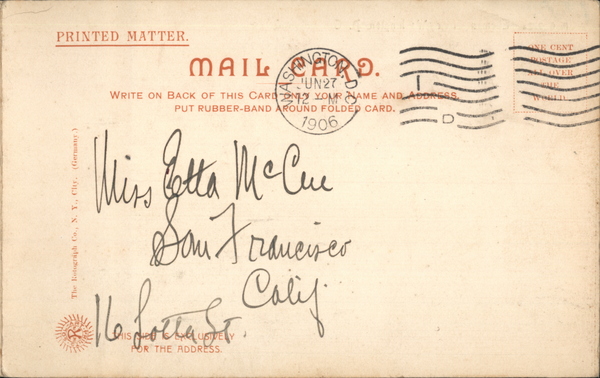 PRINTED MATTER.
MAIL CARD.
WRITE ON BACK OF THIS CARD ONLY YOUR NAME AND ADDRESS.
PUT RUBBER-BAND AROUND FOLDED CARD.
WASHINGTON, D.C.
JUN 27
12 - M
1906
1
D
ONE CENT
POSTAGE
ALL OVER
THE
WORLD.
Miss Etta McCue
San Francisco
Calif
16 Lotta St.
THIS SIDE IS EXCLUSIVELY
FOR THE ADDRESS.
The Rotograph Co., N. Y., City. (Germany.)